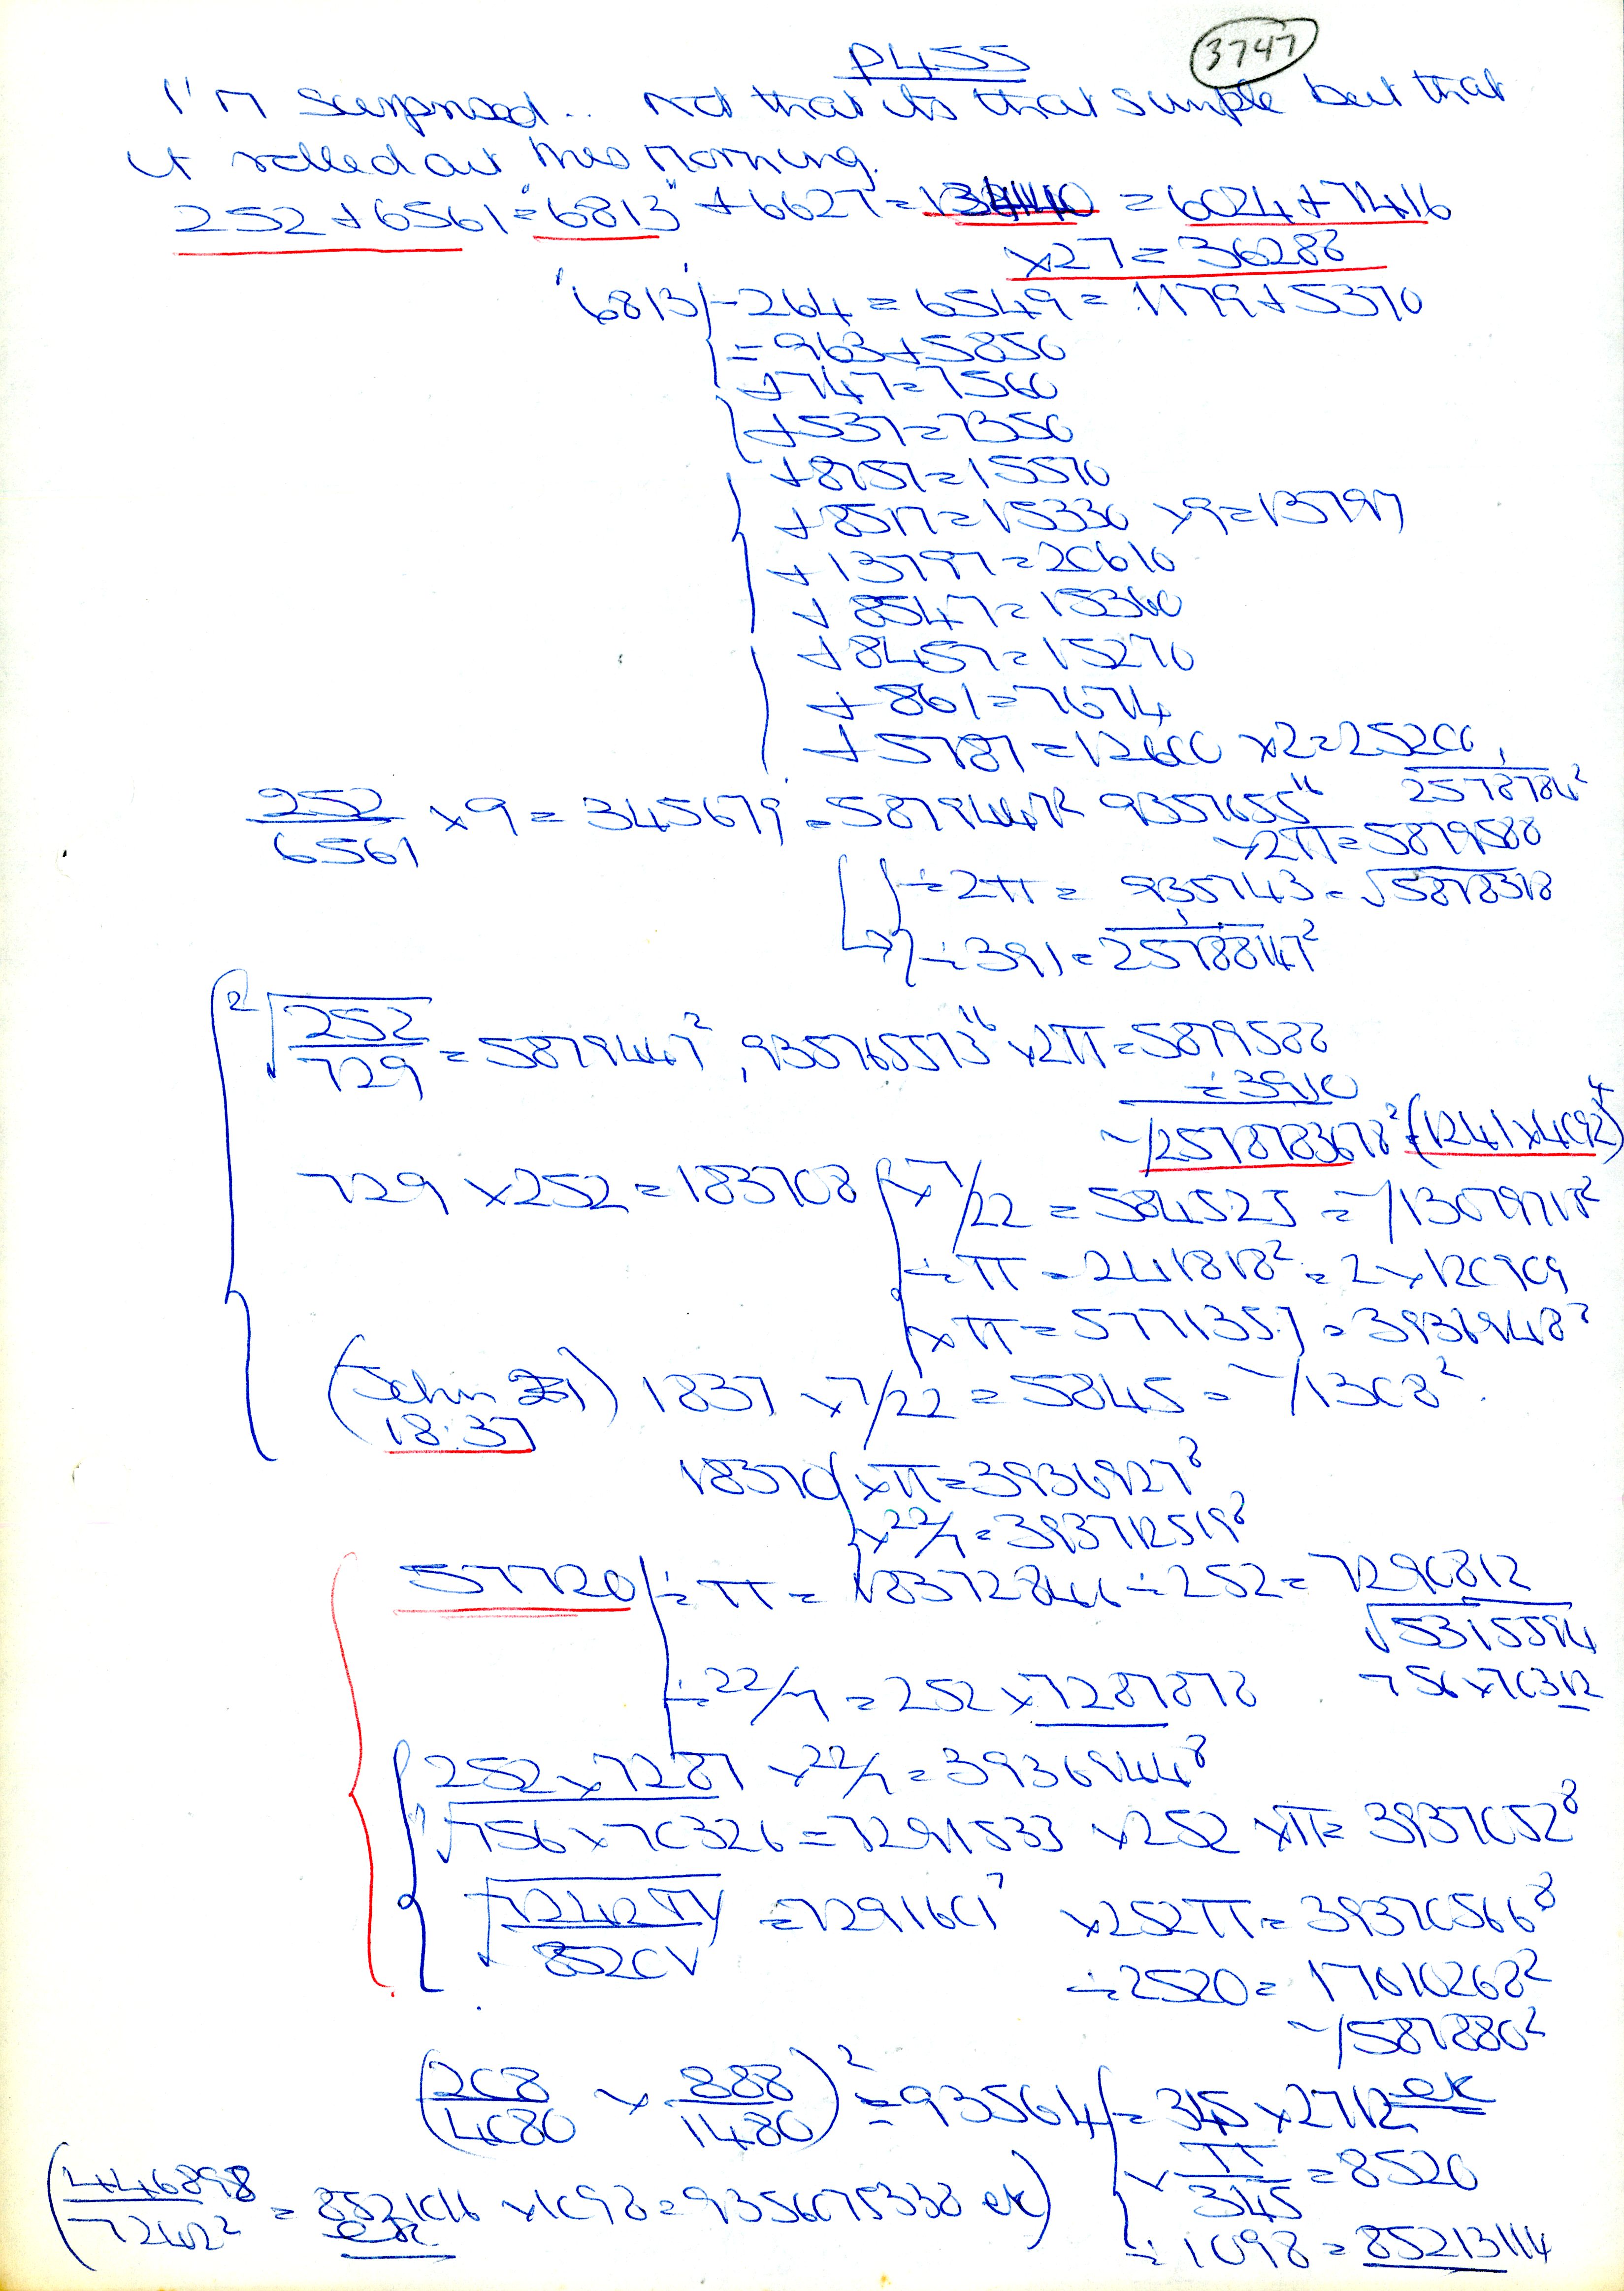 P455 3747
I'm surprised.. not that its that simple but that
it rolled out this morning.
252 + 6561 = "6813" + 6627 = 13440 = 6024 + 7416
x27 = 36288
'6813' - 264 = 6549 = 1179 + 5370
= 963 + 5850
+ 747 = 7560
+ 537 = 7350
+ 8757 = 15570
+ 8517 = 15330 x9 = 13797
+ 13797 = 20610
+ 8547 = 15360
+ 8457 = 15270
+ 861 = 7674
+ 5787 = 12600 x2 = 25200
252/6561 x 9 = 345679 = 5879447² 9357655¹⁶ 2578784²
x2π = 5879588
÷2π = 935743 = √5878318
÷391 = 2578847²
²√252/729 = 5879447², 935765573¹⁶ x2π = 5879588
÷3910
~/2578783678² = (1241 x 4092)⁴
729 x 252 = 183708 x 7/22 = 584525 = ~/1307971²
÷π = 241818² = 2 x 120909
xπ = 5771357 = 39369148⁸
(John 18:37) 1837 x 7/22 = 5845 = ~/1308².
18370 xπ = 3936927⁸
x22/7 = 393712519⁸
57720 ÷π = 18372846 ÷ 252 = 7290812
√5315594
÷22/7 = 252 x 7287878 756 x 70312
252 x 7287 x 22/7 = 39369144⁸
√756 x 70326 = 7291533 x252 xπ = 3937052⁸
= 7291601 x252π = 39370566⁸
÷2520 = 17610268²
~/587880²
(208/4080 x 888/1480)² = 935614 = 345 x 2712 ek
x π/345 = 8520
(446898/72412² = 8521016 x 1098 = 9356075338 ek)
÷1098 = 85213114